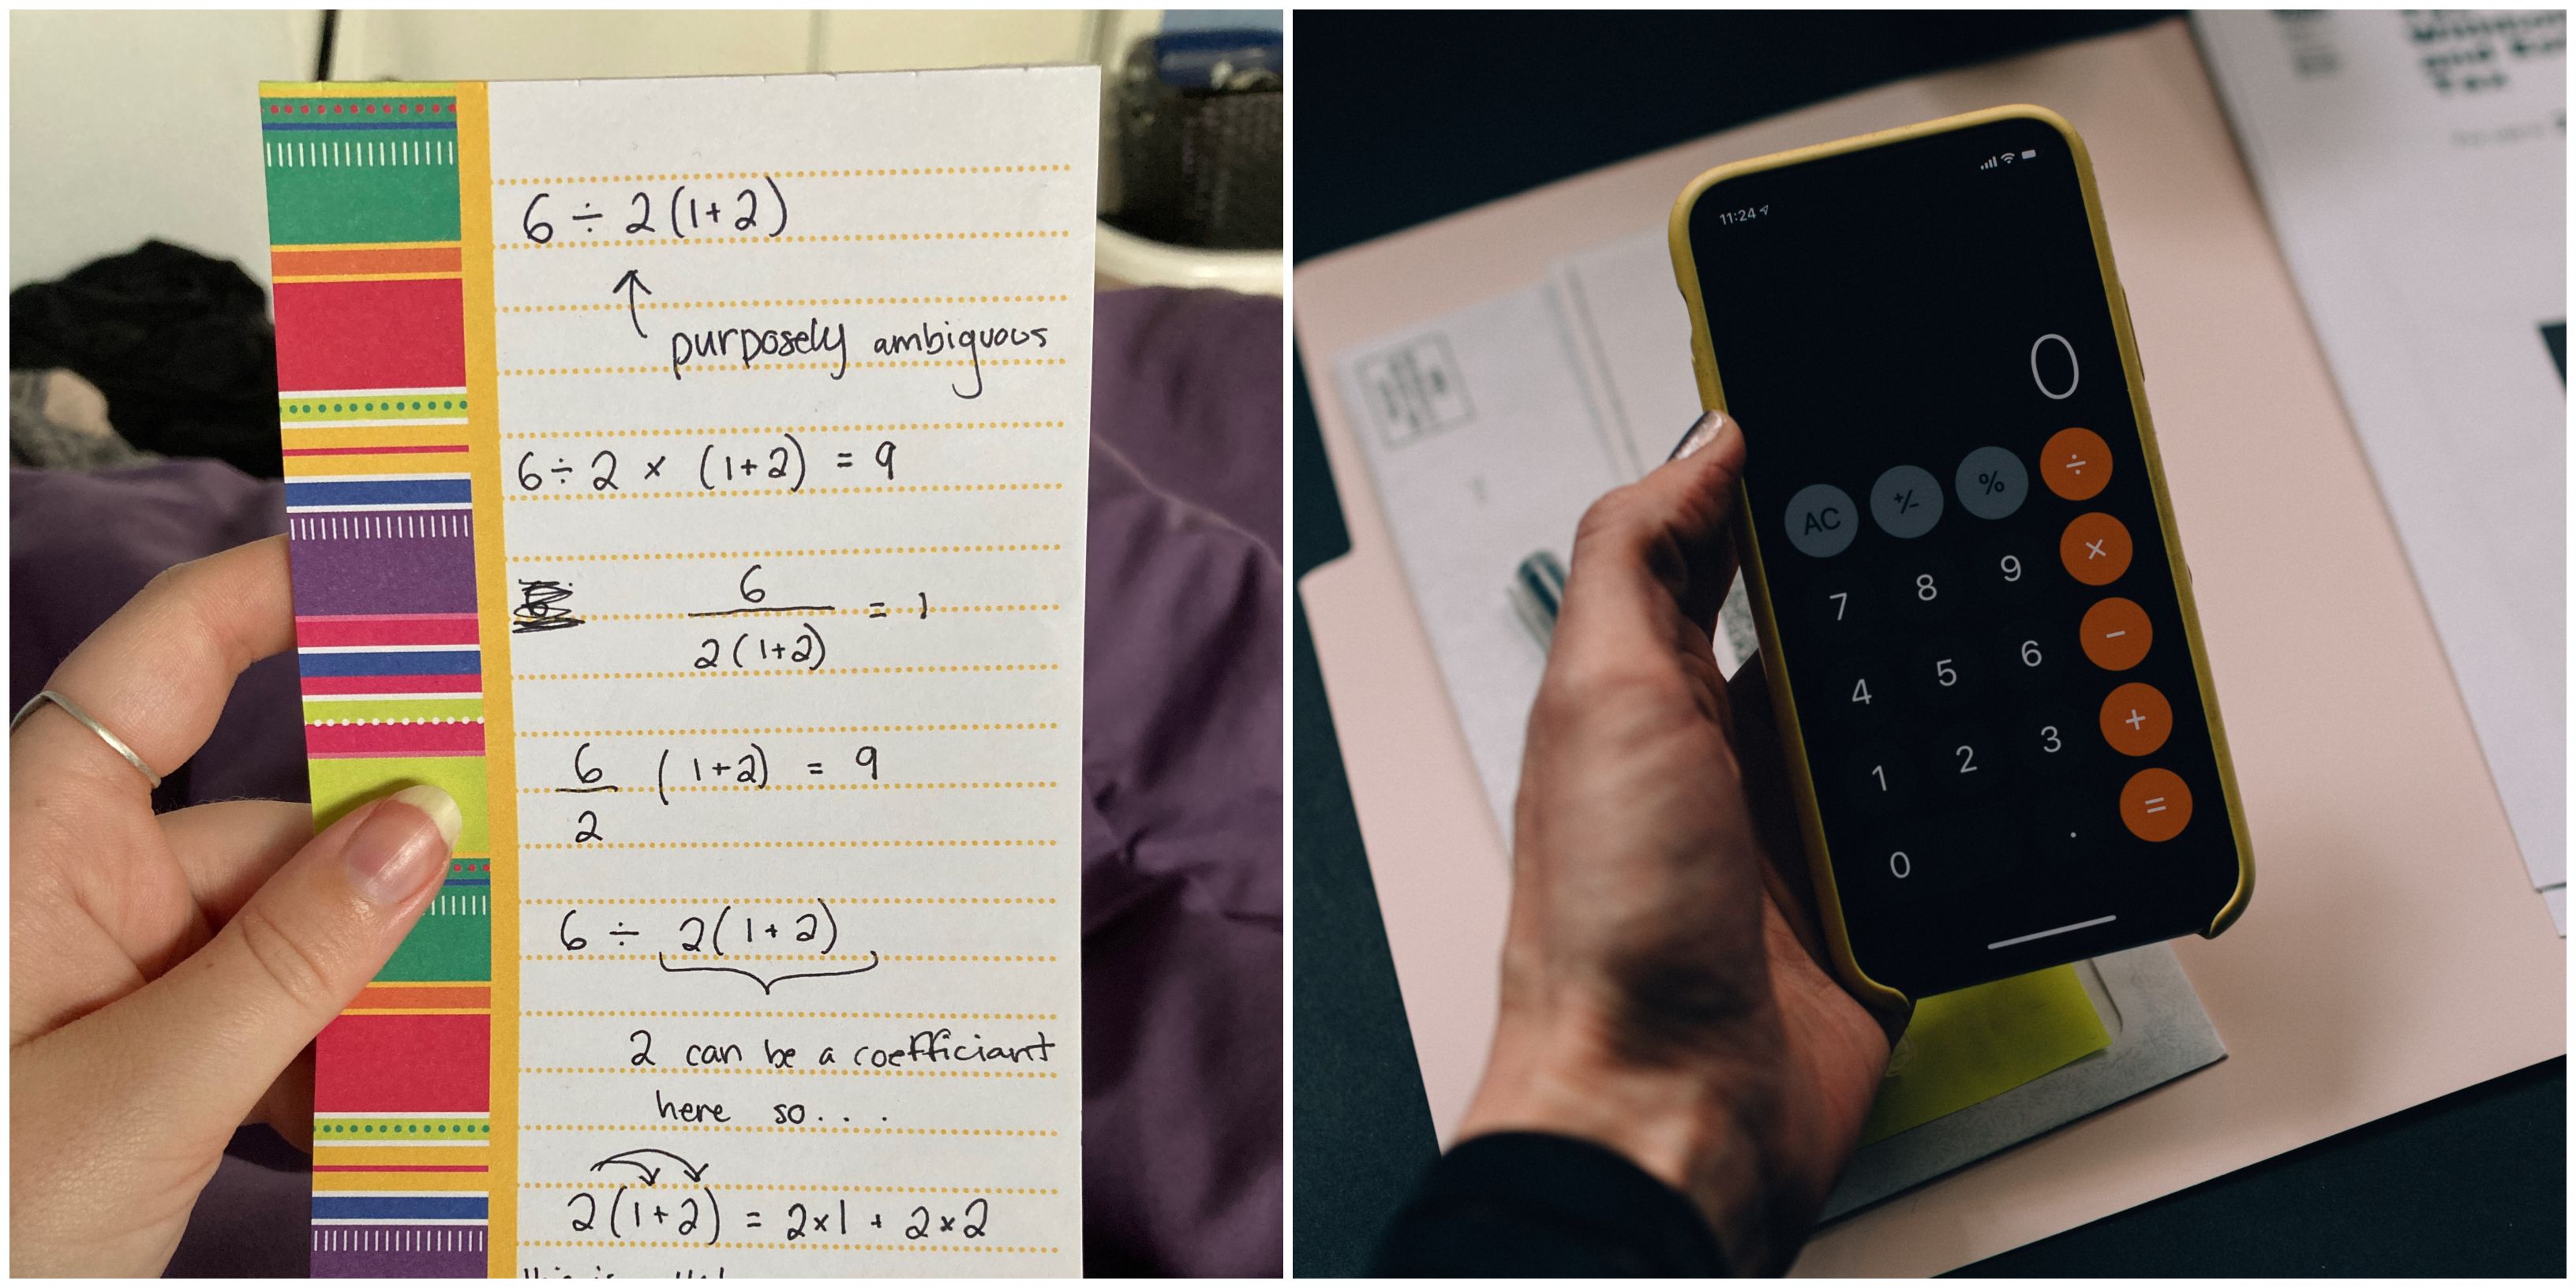 6 ÷ 2 (1+2)
purposely ambiguous
6 ÷ 2 × (1+2) = 9
6
2 (1+2)
= 1
6
2
(1+2) = 9
6 ÷ 2(1+2)
2 can be a coefficiant
here so...
2(1+2) = 2×1 + 2×2
11:24
0
AC +/- % ÷
7 8 9 ×
4 5 6 −
1 2 3 +
0 . =